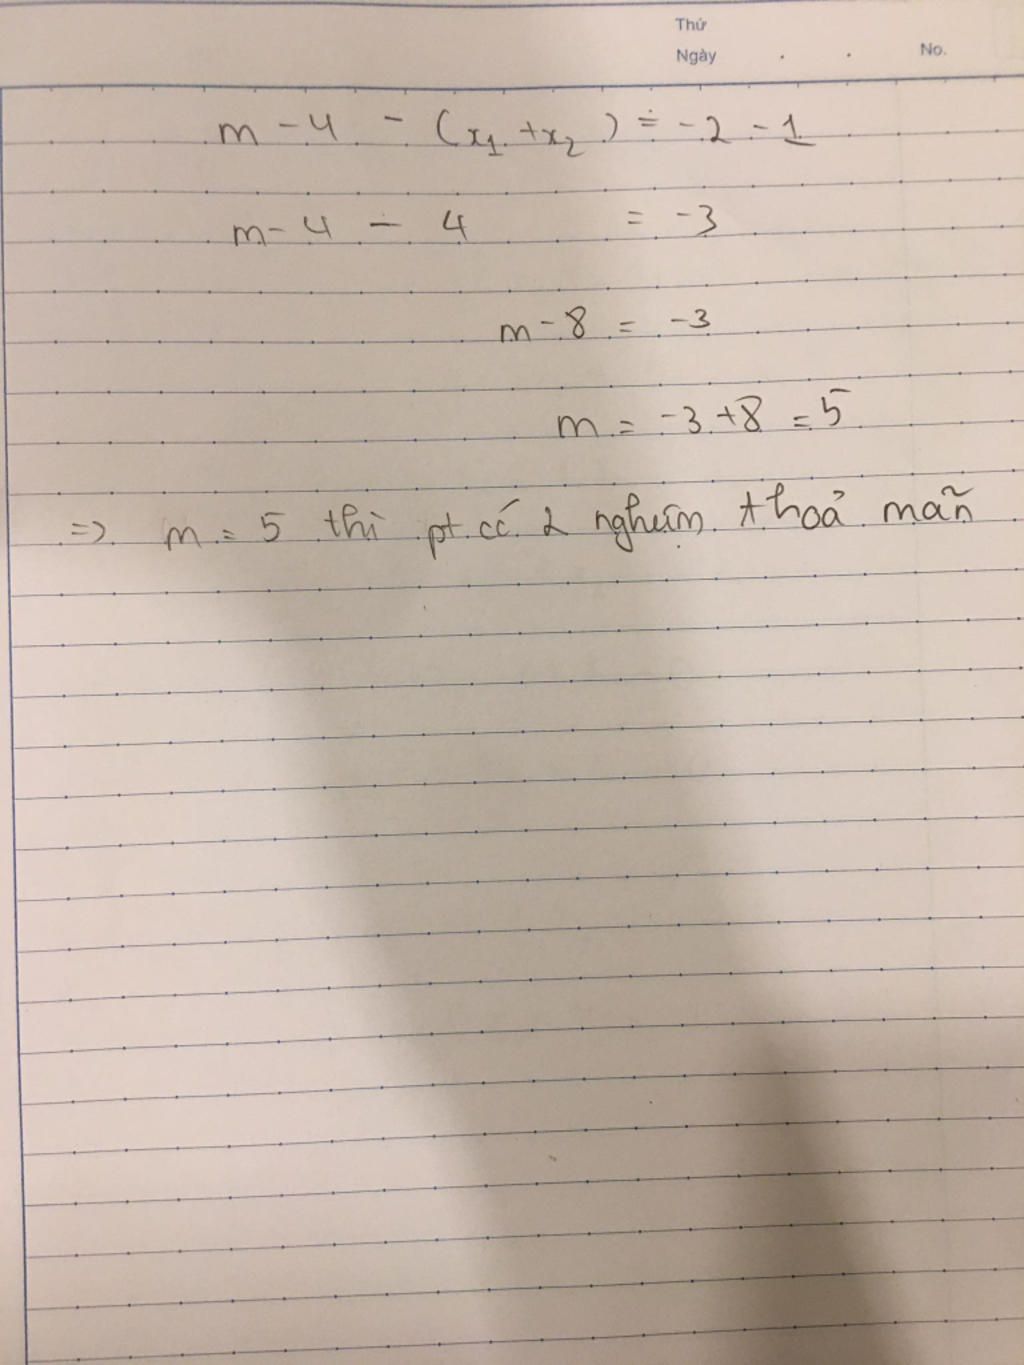 Thứ
Ngày . . No.
m - 4 - (x₁ + x₂) = -2 - 1
m - 4 - 4 = -3
m - 8 = -3
m = -3 + 8 = 5
=> m = 5 thì pt có 2 nghiệm thoả mãn